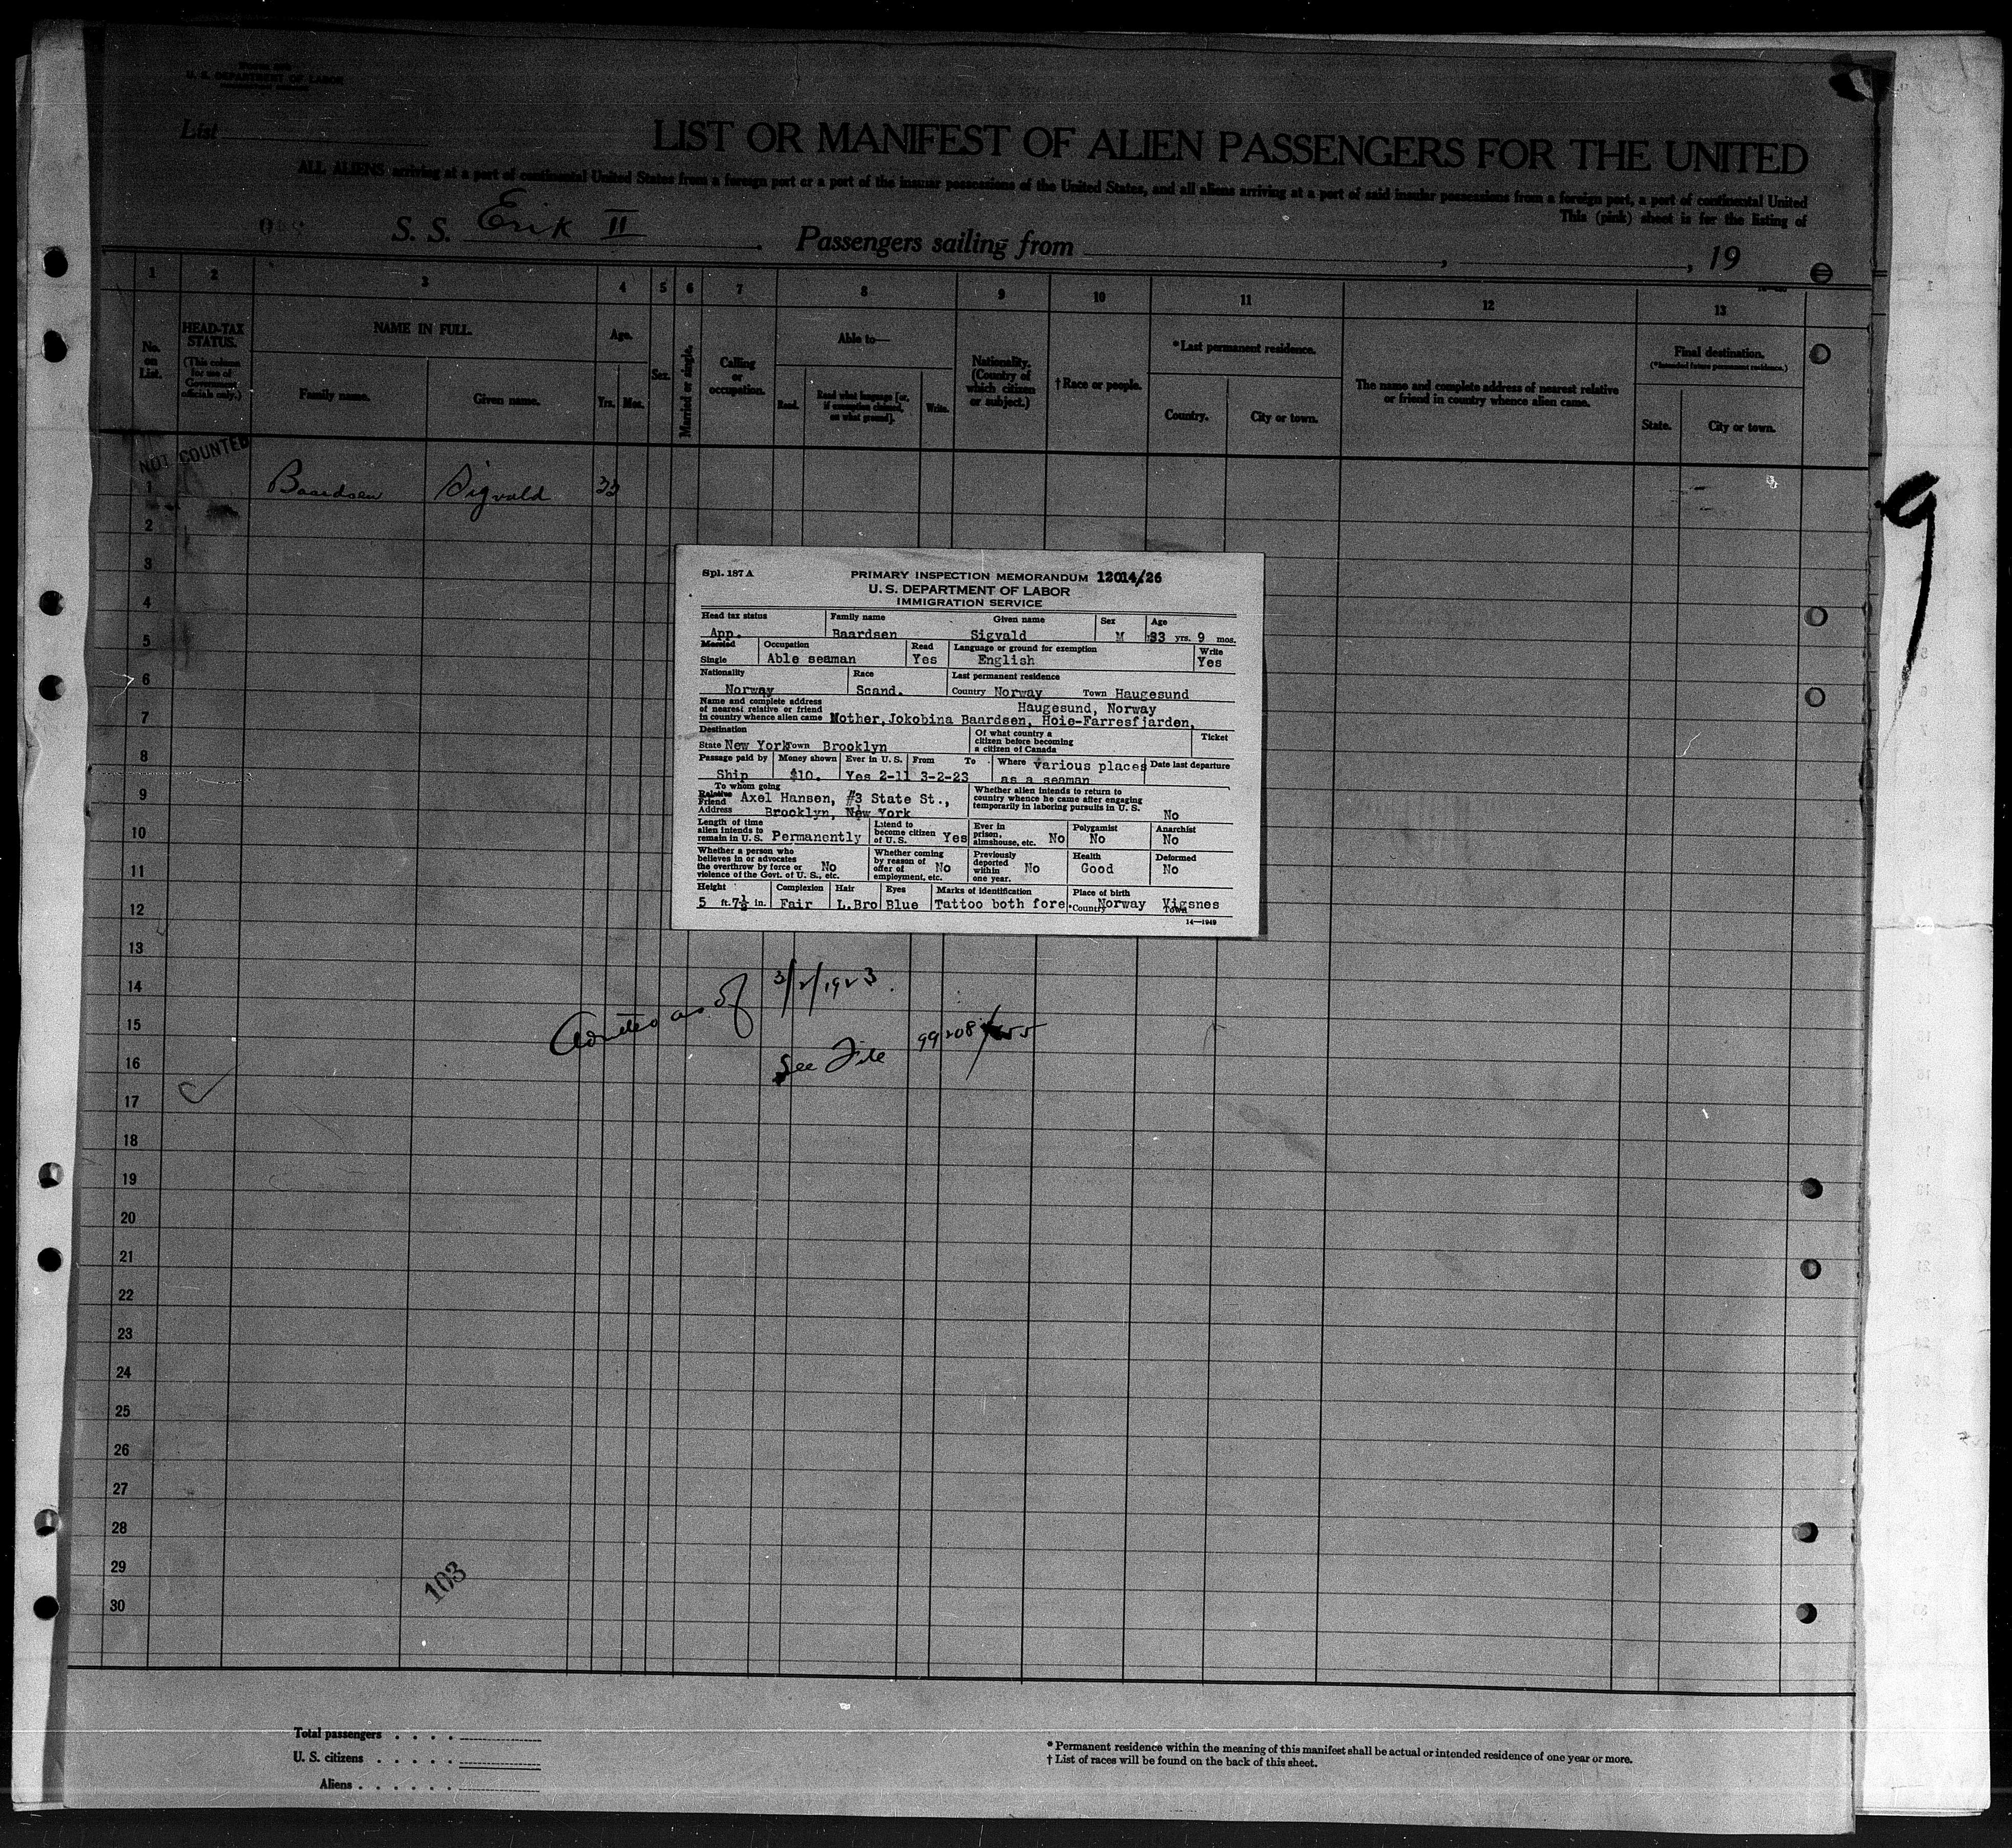 U. S. DEPARTMENT OF LABOR
List
LIST OR MANIFEST OF ALIEN PASSENGERS FOR THE UNITED
ALL ALIENS arriving at a port of continental United States from a foreign port or a port of the insular possessions of the United States, and all aliens arriving at a port of said insular possessions from a foreign port, a port of continental United
This (pink) sheet is for the listing of
S. S. Erik II . Passengers sailing from , , 19
1 2 3 4 5 6 7 8 9 10 11 12 13
No. on List.
HEAD-TAX STATUS.
(This column for use of Government officials only.)
NAME IN FULL.
Family name. Given name.
Age.
Yrs. Mos.
Sex.
Married or single.
Calling or occupation.
Able to—
Read. Read what language [or, if exemption claimed, on what ground]. Write.
Nationality. (Country of which citizen or subject.)
† Race or people.
* Last permanent residence.
Country. City or town.
The name and complete address of nearest relative or friend in country whence alien came.
Final destination.
(* Intended future permanent residence.)
State. City or town.
NOT COUNTED
1 Baardsen Sigvald 33
9
2
3
4
5
6
7
8
9
10
11
12
13
14
15
16
17
18
19
20
21
22
23
24
25
26
27
28
29
30
Spl. 187 A PRIMARY INSPECTION MEMORANDUM 12014/26
U. S. DEPARTMENT OF LABOR
IMMIGRATION SERVICE
Head tax status Family name Given name Sex Age
App. Baardsen Sigvald M 33 yrs. 9 mos.
Married Occupation Read Language or ground for exemption Write
Single Able seaman Yes English Yes
Nationality Race Last permanent residence
Norway Scand. Country Norway Town Haugesund
Name and complete address of nearest relative or friend in country whence alien came Mother, Jokobina Baardsen, Hoie-Farresfjarden, Haugesund, Norway
Destination Of what country a citizen before becoming a citizen of Canada Ticket
State New York Town Brooklyn
Passage paid by Money shown Ever in U. S. From To Where various places Date last departure
Ship $10. Yes 2-11 3-2-23 as a seaman
To whom going
Relative Friend Axel Hansen, #3 State St.,
Address Brooklyn, New York
Whether alien intends to return to country whence he came after engaging temporarily in laboring pursuits in U. S. No
Length of time alien intends to remain in U. S. Permanently
Intend to become citizen of U. S. Yes
Ever in prison, almshouse, etc. No
Polygamist No
Anarchist No
Whether a person who believes in or advocates the overthrow by force or violence of the Govt. of U. S., etc. No
Whether coming by reason of offer of employment, etc. No
Previously deported within one year. No
Health Good
Deformed No
Height Complexion Hair Eyes Marks of identification Place of birth
5 ft. 7½ in. Fair L.Bro Blue Tattoo both fore Country Norway Town Vigsnes
14—1949
Admitted as of 3/2/1923.
See File 99208/
103
Total passengers . . . .
U. S. citizens . . . . .
Aliens . . . . . .
* Permanent residence within the meaning of this manifest shall be actual or intended residence of one year or more.
† List of races will be found on the back of this sheet.